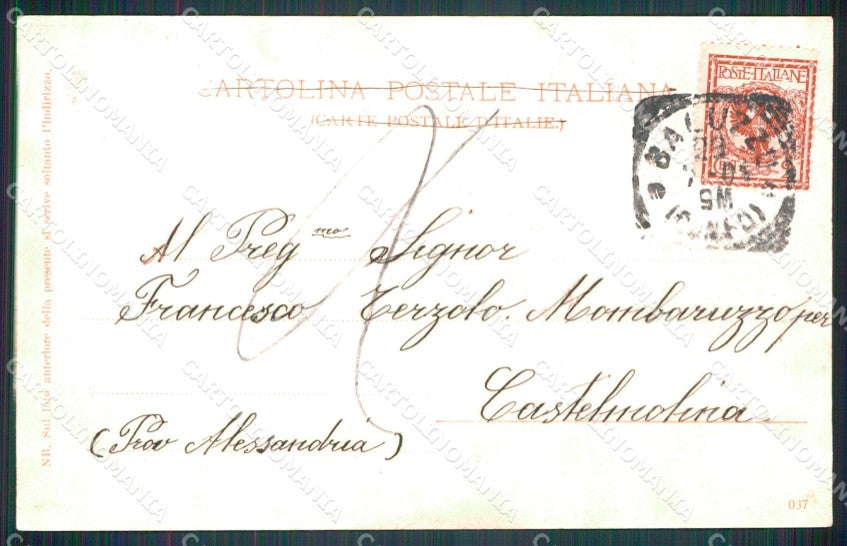 CARTOLINA POSTALE ITALIANA
(CARTE POSTALE D'ITALIE.)
POSTE·ITALIANE
Al Preg.mo Signor
Francesco Terzolo. Mombaruzzo per
Castelmolina
(Prov Alessandria)
NB. Sul lato anteriore della presente si scrive soltanto l'indirizzo.
037
CARTOLINOMANIA